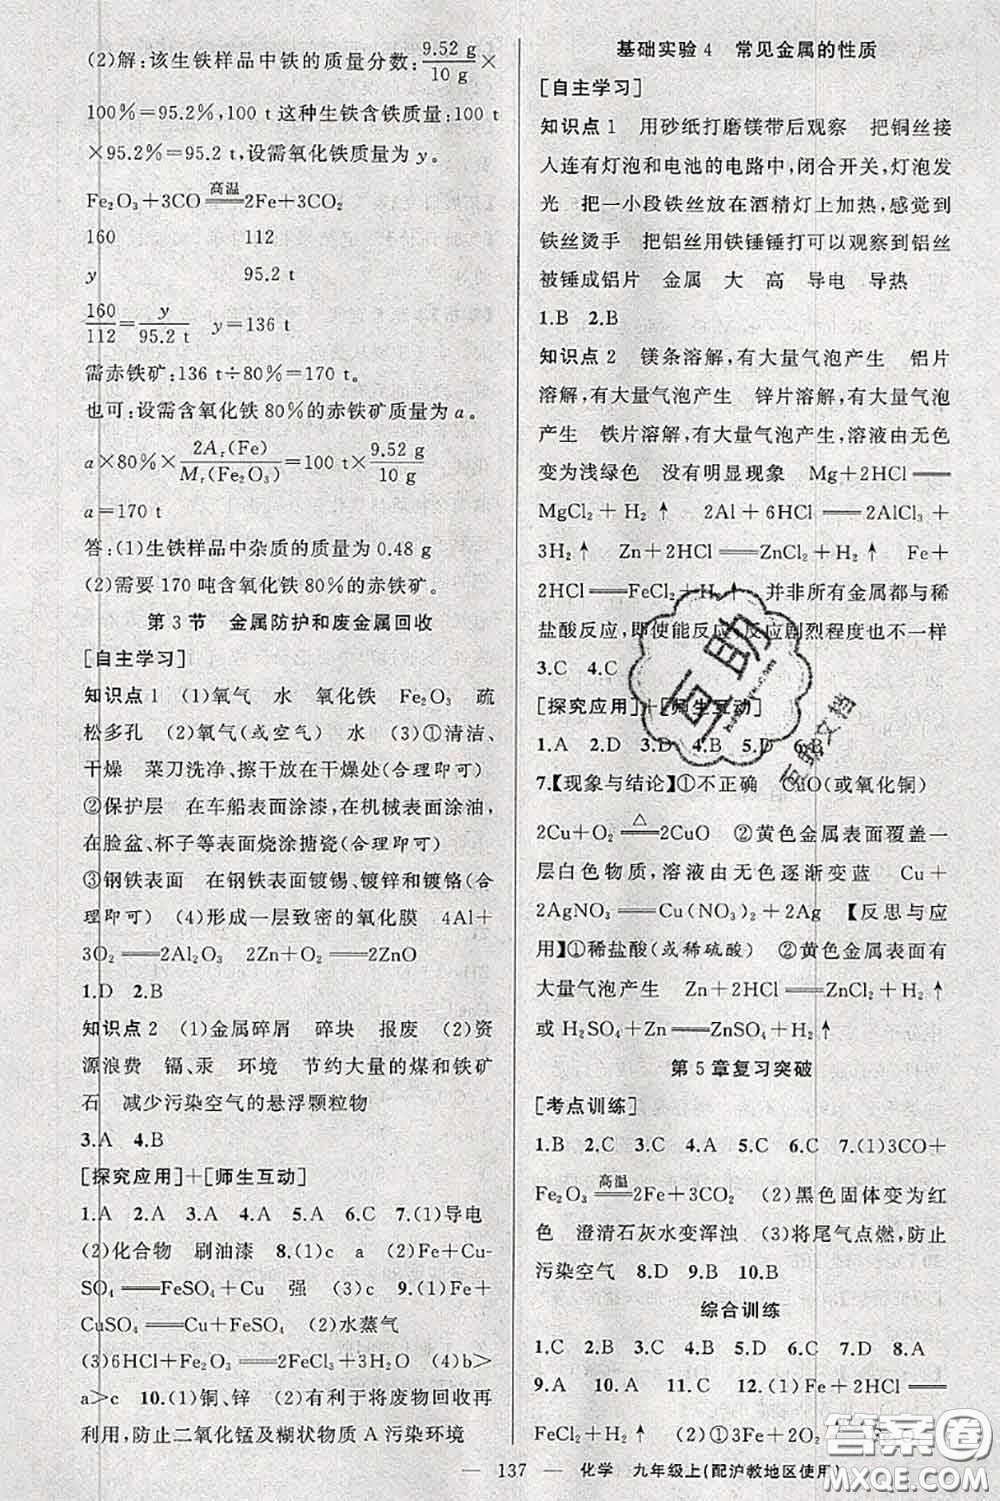 (2)解:该生铁样品中铁的质量分数:9.52 g/10 g×
100%=95.2%,100 t这种生铁含铁质量:100 t
×95.2%=95.2 t,设需氧化铁质量为 y。
Fe₂O₃+3CO═高温═2Fe+3CO₂
160 112
y 95.2 t
160/112=y/95.2 t y=136 t
需赤铁矿:136 t÷80%=170 t。
也可:设需含氧化铁80%的赤铁矿质量为 a。
a×80%×2Aᵣ(Fe)/Mᵣ(Fe₂O₃)=100 t×9.52 g/10 g
a=170 t
答:(1)生铁样品中杂质的质量为0.48 g
(2)需要170吨含氧化铁80%的赤铁矿。
第3节 金属防护和废金属回收
[自主学习]
知识点1 (1)氧气 水 氧化铁 Fe₂O₃ 疏
松多孔 (2)氧气(或空气) 水 (3)①清洁、
干燥 菜刀洗净、擦干放在干燥处(合理即可)
②保护层 在车船表面涂漆,在机械表面涂油,
在脸盆、杯子等表面烧涂搪瓷(合理即可)
③钢铁表面 在钢铁表面镀锡、镀锌和镀铬(合
理即可) (4)形成一层致密的氧化膜 4Al+
3O₂═2Al₂O₃ 2Zn+O₂═2ZnO
1.D 2.B
知识点2 (1)金属碎屑 碎块 报废 (2)资
源浪费 镉、汞 环境 节约大量的煤和铁矿
石 减少污染空气的悬浮颗粒物
3.A 4.B
[探究应用]+[师生互动]
1.A 2.A 3.A 4.A 5.A 6.C 7.(1)导电
(2)化合物 刷油漆 8.(1)c a (2)Fe+Cu-
SO₄═FeSO₄+Cu 强 (3)c 9.(1)Fe+
CuSO₄═Cu+FeSO₄ (2)水蒸气
(3)6HCl+Fe₂O₃═2FeCl₃+3H₂O (4)b>
a>c 10.(1)铜、锌 (2)有利于将废物回收再
利用,防止二氧化锰及糊状物质A污染环境
基础实验4 常见金属的性质
[自主学习]
知识点1 用砂纸打磨镁带后观察 把铜丝接
入连有灯泡和电池的电路中,闭合开关,灯泡发
光 把一小段铁丝放在酒精灯上加热,感觉到
铁丝烫手 把铝丝用铁锤锤打可以观察到铝丝
被锤成铝片 金属 大 高 导电 导热
1.B 2.B
知识点2 镁条溶解,有大量气泡产生 铝片
溶解,有大量气泡产生 锌片溶解,有大量气泡
产生 铁片溶解,有大量气泡产生,溶液由无色
变为浅绿色 没有明显现象 Mg+2HCl═
MgCl₂+H₂↑ 2Al+6HCl═2AlCl₃+
3H₂↑ Zn+2HCl═ZnCl₂+H₂↑ Fe+
2HCl═FeCl₂+H₂↑ 并非所有金属都与稀
盐酸反应,即使能反应,反应剧烈程度也不一样
3.C 4.C
[探究应用]+[师生互动]
1.A 2.D 3.D 4.B 5.D 6.B
7.【现象与结论】①不正确 CuO(或氧化铜)
2Cu+O₂═△═2CuO ②黄色金属表面覆盖一
层白色物质,溶液由无色逐渐变蓝 Cu+
2AgNO₃═Cu(NO₃)₂+2Ag 【反思与应
用】①稀盐酸(或稀硫酸) ②黄色金属表面有
大量气泡产生 Zn+2HCl═ZnCl₂+H₂↑
或H₂SO₄+Zn═ZnSO₄+H₂↑
第5章复习突破
[考点训练]
1.B 2.C 3.C 4.A 5.C 6.C 7.(1)3CO+
Fe₂O₃═高温═2Fe+3CO₂ (2)黑色固体变为红
色 澄清石灰水变浑浊 (3)将尾气点燃,防止
污染空气 8.D 9.B 10.B
综合训练
1.C 2.C 3.B 4.D 5.A 6.D 7.D 8.A
9.A 10.A 11.C 12.(1)Fe+2HCl═
FeCl₂+H₂↑ (2)①
— 137 — 化学 九年级上(配沪教地区使用)
互助
互助文档
答案圈
MXQE.COM